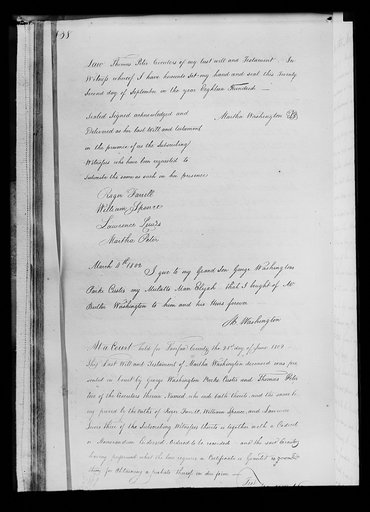 138
Law Thomas Peter Executors of my last will and Testament. In
Witness whereof I have hereunto set my hand and seal this Twenty
Second day of September in the year Eighteen Hundred
Sealed Signed acknowledged and
Martha Washington
Delivered as her last Will and testament
in the presence of us the Subscribing
Witnesses who have been requested to
Subscribe the same as such in her presence
Roger Farrell
William Spence
Lawrence Lewis
Martha Peter
March 4th 1802
I give to my Grand Son George Washington
Parke Custis my Mulatto Man Elijah that I bought of Mr
Butler Washington to him and his Heirs forever
M. Washington
At a Court held for Fairfax County the 21st day of June 1802
This Last Will and Testament of Martha Washington deceased was pre
sented in Court by George Washington Parke Custis and Thomas Peter
two of the Executors therein Named who made oath thereto and the same be
ing proved by the oaths of Roger Farrell William Spence and Lawrence
Lewis three of the Subscribing Witnesses thereto is together with a Codicil
or Memorandum Endorsed Ordered to be recorded and the said Executors
having performed what the Law requires a Certificate is Granted
them for Obtaining a probate thereof in due form